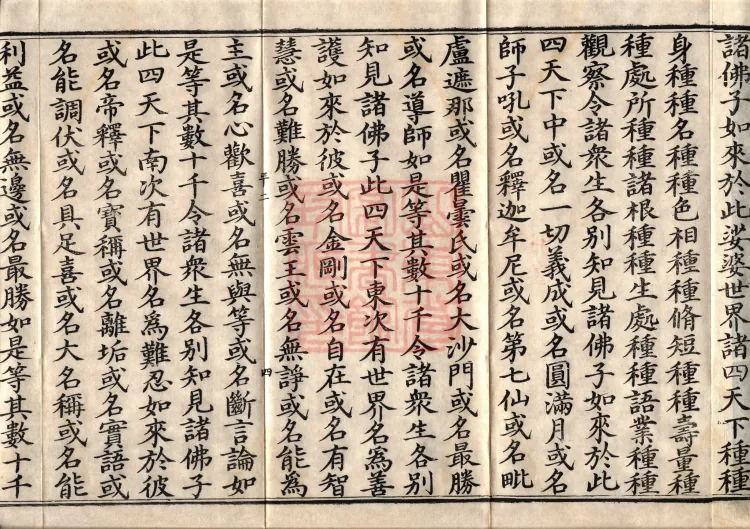 諸佛子如來於此娑婆世界諸四天下種種
身種種名種種色相種種脩短種種壽量種
種處所種種諸根種種生處種種語業種種
觀察令諸衆生各別知見諸佛子如來於此
四天下中或名一切義成或名圓滿月或名
師子吼或名釋迦牟尼或名第七仙或名毗
盧遮那或名瞿曇氏或名大沙門或名最勝
或名導師如是等其數十千令諸衆生各別
知見諸佛子此四天下東次有世界名爲善
護如來於彼或名金剛或名自在或名有智
慧或名難勝或名雲王或名無諍或名能爲
平二
四
主或名心歡喜或名無與等或名斷言論如
是等其數十千令諸衆生各別知見諸佛子
此四天下南次有世界名爲難忍如來於彼
或名帝釋或名寶稱或名離垢或名實語或
名能調伏或名具足喜或名大名稱或名能
利益或名無邊或名最勝如是等其數十千